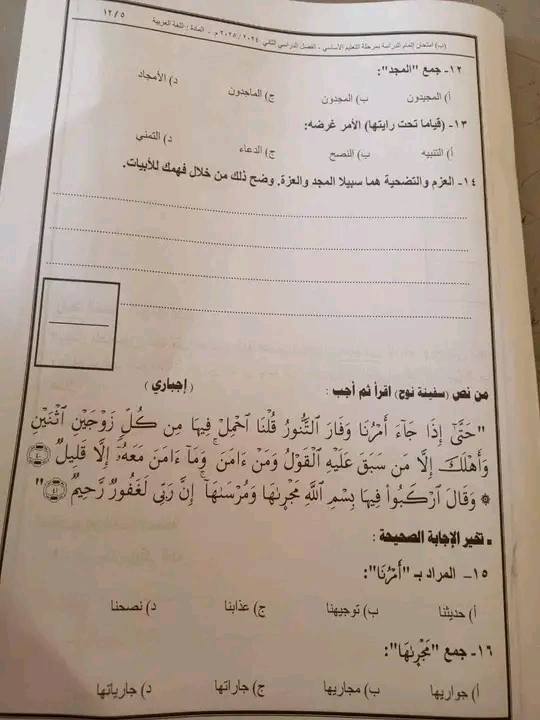 (ب) امتحان إتمام الدراسة بمرحلة التعليم الأساسي - الفصل الدراسي الثاني ٢٠٢٤/٢٠٢٥م - المادة : اللغة العربية ١٢/٥
١٢- جمع "المجد":
أ) المجيدون ب) المجدون ج) الماجدون د) الأمجاد
١٣- (قياما تحت رايتها) الأمر غرضه:
أ) التنبيه ب) النصح ج) الدعاء د) التمني
١٤- العزم والتضحية هما سبيلا المجد والعزة. وضح ذلك من خلال فهمك للأبيات.
من نص (سفينة نوح) اقرأ ثم أجب : (إجباري)
"حَتَّىٰٓ إِذَا جَآءَ أَمْرُنَا وَفَارَ ٱلتَّنُّورُ قُلْنَا ٱحْمِلْ فِيهَا مِن كُلٍّ زَوْجَيْنِ ٱثْنَيْنِ
وَأَهْلَكَ إِلَّا مَن سَبَقَ عَلَيْهِ ٱلْقَوْلُ وَمَنْ ءَامَنَ ۚ وَمَآ ءَامَنَ مَعَهُۥٓ إِلَّا قَلِيلٌ ٤٠
۞ وَقَالَ ٱرْكَبُوا۟ فِيهَا بِسْمِ ٱللَّهِ مَجْر۪ىٰهَا وَمُرْسَىٰهَآ ۚ إِنَّ رَبِّى لَغَفُورٌ رَّحِيمٌ ٤١"
▪ تخير الإجابة الصحيحة :
١٥- المراد بـ "أَمْرُنَا":
أ) حديثنا ب) توجيهنا ج) عذابنا د) نصحنا
١٦- جمع "مَجْر۪ىٰهَا":
أ) جواريها ب) مجاريها ج) جاراتها د) جارياتها